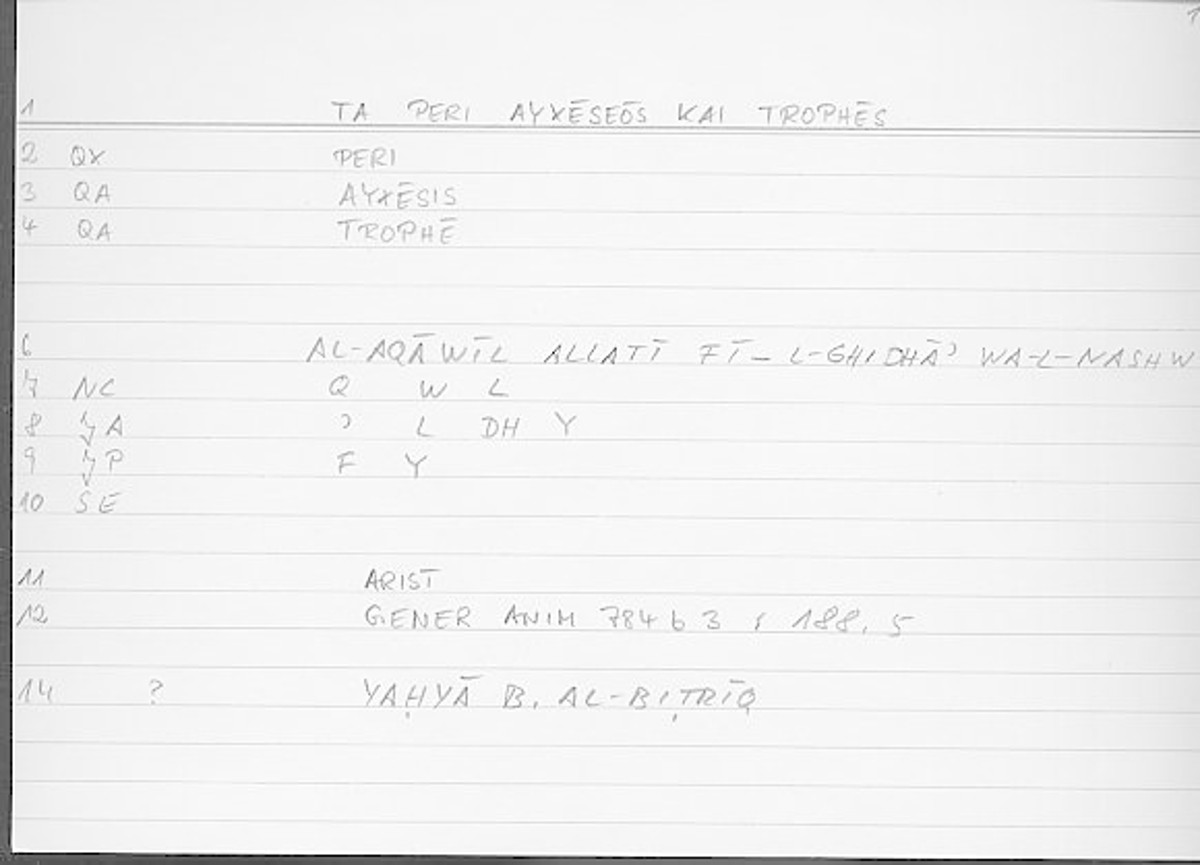 1 TA PERI AYXĒSEŌS KAI TROPHĒS
2 QX PERI
3 QA AYXĒSIS
4 QA TROPHĒ
6 AL-AQĀWĪL ALLATĪ FĪ-L-GHIDHĀʾ WA-L-NASHW
7 NC Q W L
8 A ʾ L DH Y
9 P F Y
10 SE
11 ARIST
12 GENER ANIM 784 b 3 188.5
14 ? YAḤYĀ B. AL-BIṬRĪQ